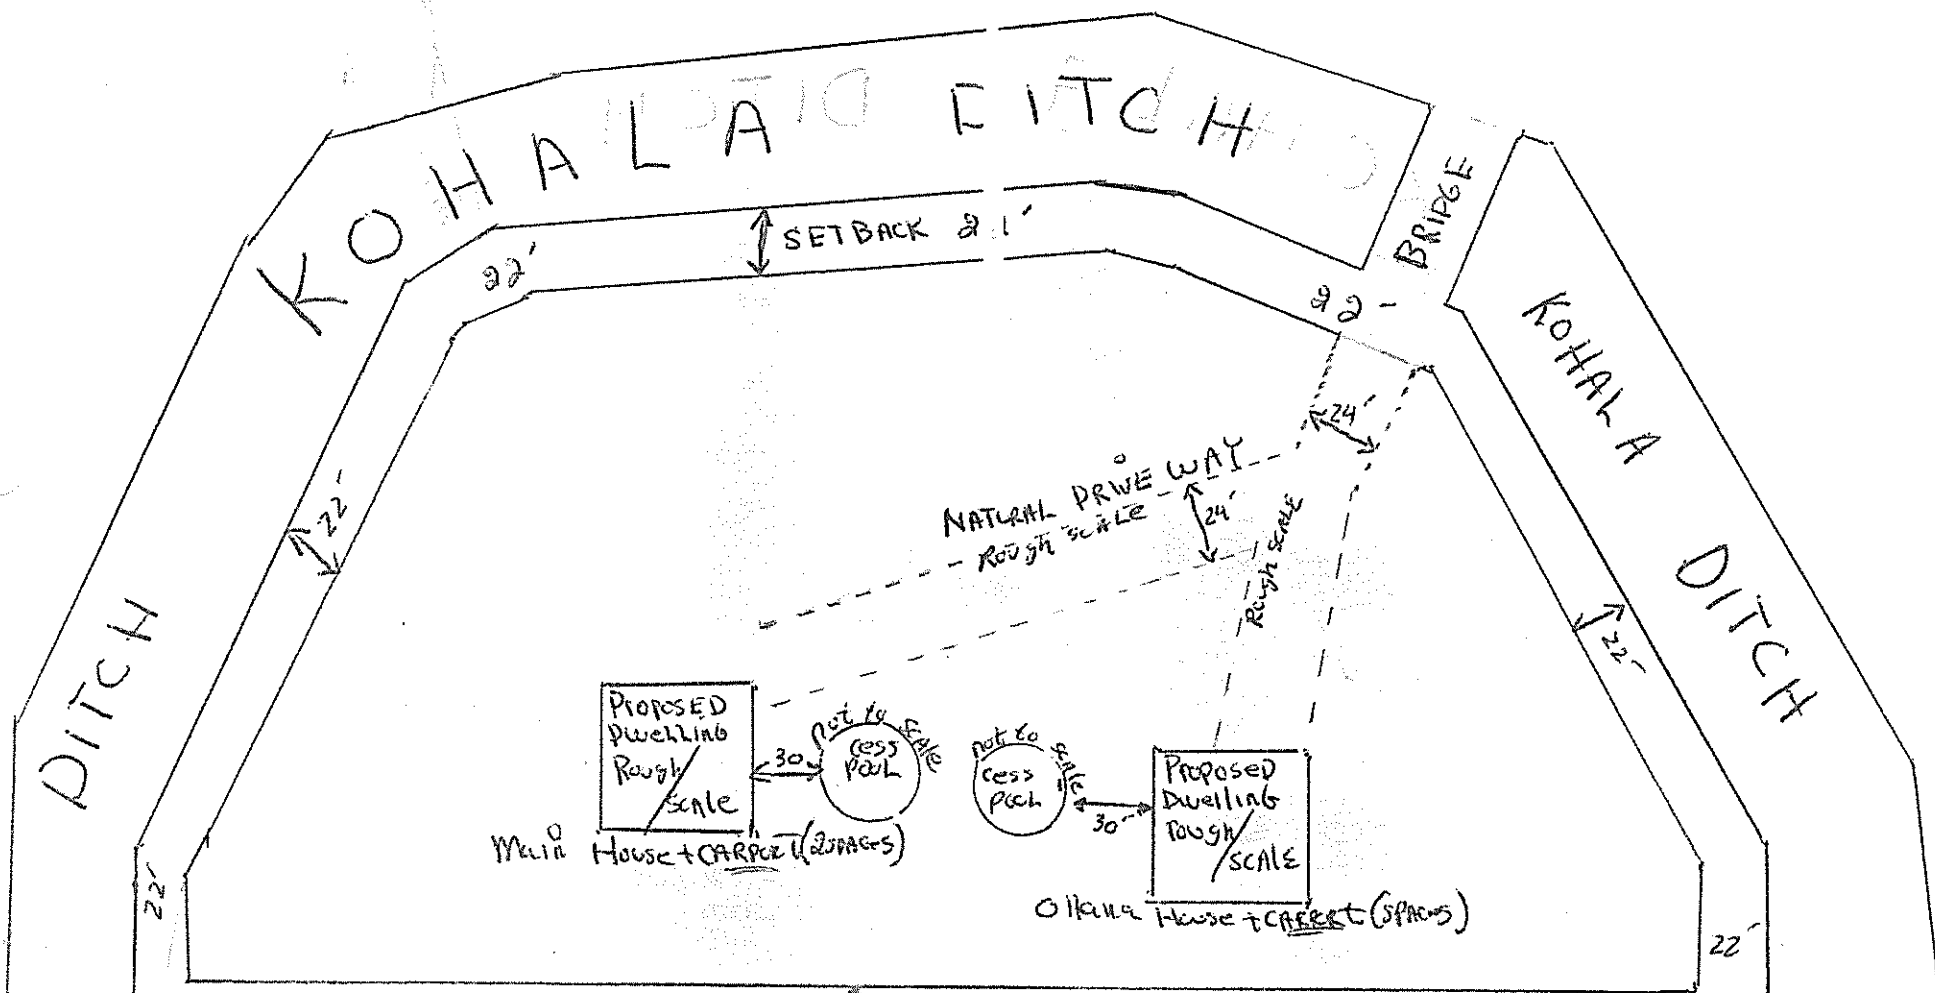 KOHALA DITCH
BRIDGE
SETBACK 21'
22'
22'-
KOHALA DITCH
24'
NATURAL DRIVE WAY
Rough scale
24'
Rough scale
22'
22'
DITCH
PROPOSED
Dwelling
Rough/
scale
30
not to scale
cess
pool
not to scale
cess
pool
30'
Proposed
Dwelling
rough/
SCALE
Main House + CARPORT (2 SPACES)
Ohana House + CARPORT (SPACES)
22'
22'